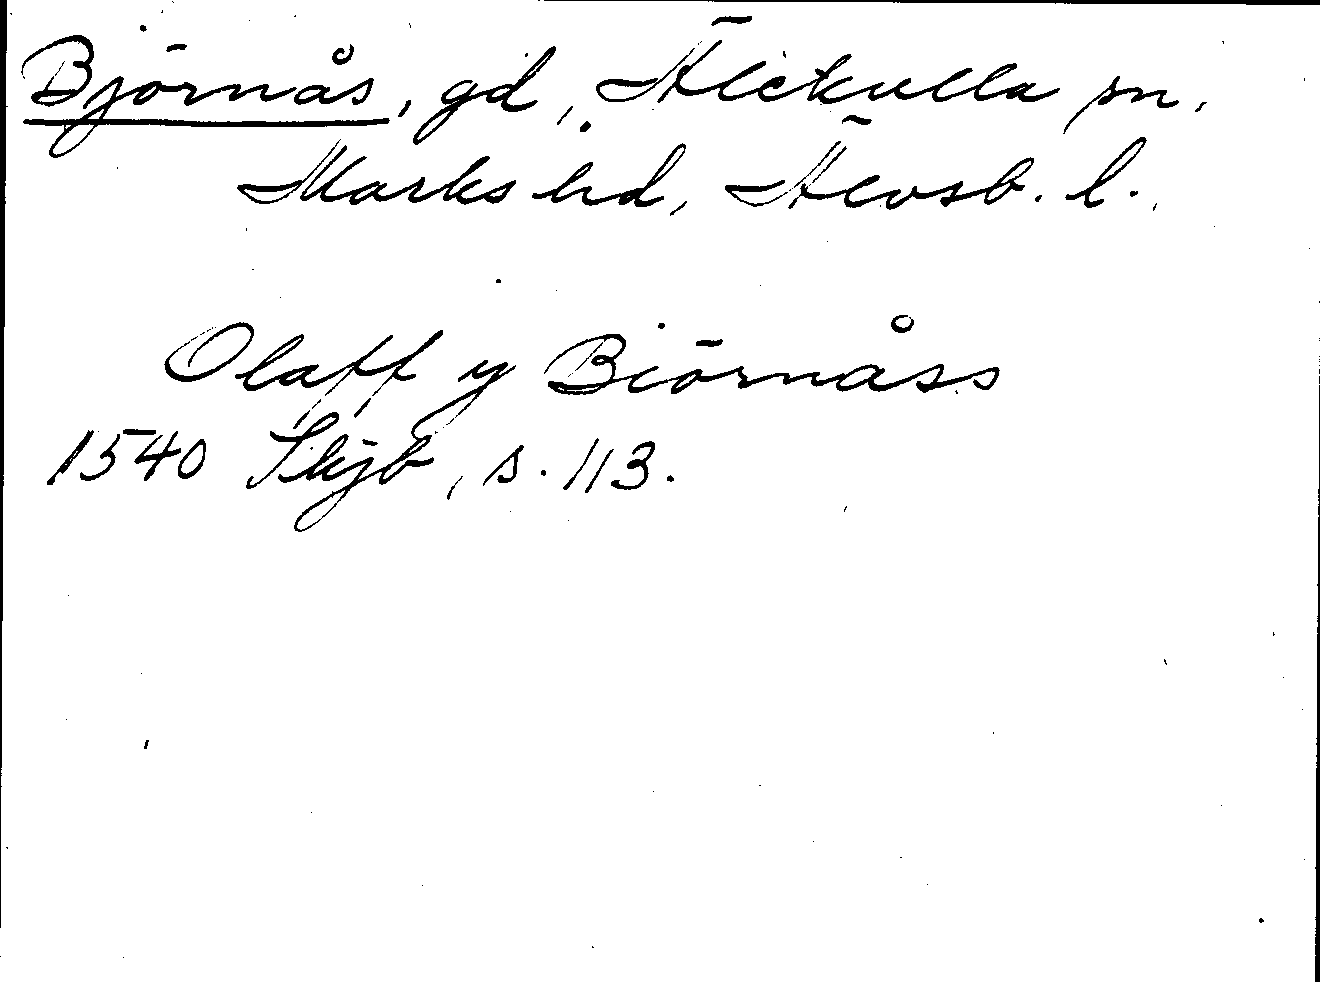 Björnås, gd, Älekulla sn,
Marks hd, Älvsb. l.
Olaff y Biörnåss
1540 Skjb, s. 113.